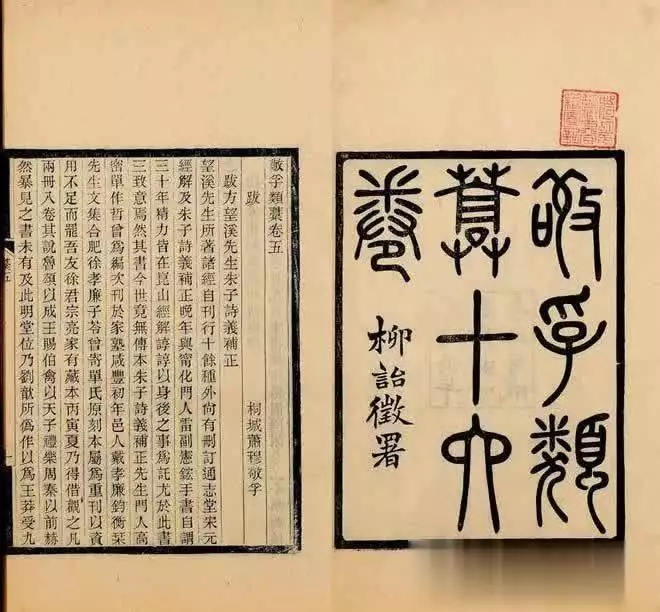 敬孚類
藁十六
卷
柳詒徵署
敬孚類藁卷五
跋
桐城蕭穆敬孚
跋方望溪先生朱子詩義補正
望溪先生所著諸經自刊行十餘種外尚有刪訂通志堂宋元
經解及朱子詩義補正晚年與甯化門人雷副憲鋐手書自謂
三十年精力皆在崑山經解諄諄以身後之事為託尤於此書
三致意焉然其書今世竟無傳本朱子詩義補正先生門人高
密單作哲曾爲編次刊於家塾咸豐初年邑人戴孝廉鈞衡栞
先生文集合肥徐孝廉子苓曾寄單氏原刻本屬爲重刊以資
用不足而罷吾友徐君宗亮家有藏本丙寅夏乃得借觀之凡
兩冊八卷其說魯頌以成王賜伯禽以天子禮樂周秦以前赫
然暴見之書未有及此明堂位乃劉歆所僞作以爲王莽受九